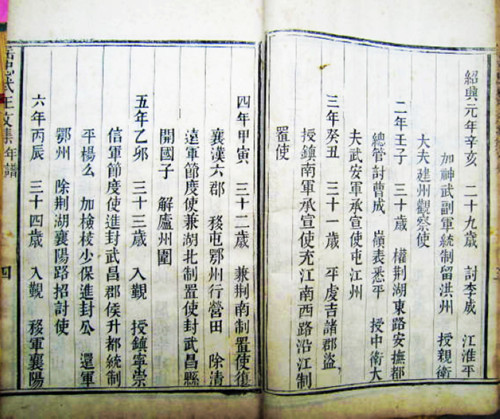 紹興元年辛亥 二十九歲 討李成 江淮平
加神武副軍統制留洪州 授親衛
大夫建州觀察使
二年壬子 三十歲 權荆湖東路安撫都
總管討曹成 嶺表悉平 授中衛大
夫武安軍承宣使屯江州
三年癸丑 三十一歲 平虔吉諸郡盜
授鎮南軍承宣使充江南西路沿江制
置使
四年甲寅 三十二歲 兼荆南制置使復
襄漢六郡 移屯鄂州行營田 除清
遠軍節度使兼湖北制置使封武昌縣
開國子 解廬州圍
五年乙卯 三十三歲 入覲 授鎮寧崇
信軍節度使進封武昌郡侯升都統制
平楊么 加檢校少保進封公 還軍
鄂州 除荆湖襄陽路招討使
六年丙辰 三十四歲 入覲 移軍襄陽
武王文集 年譜
四